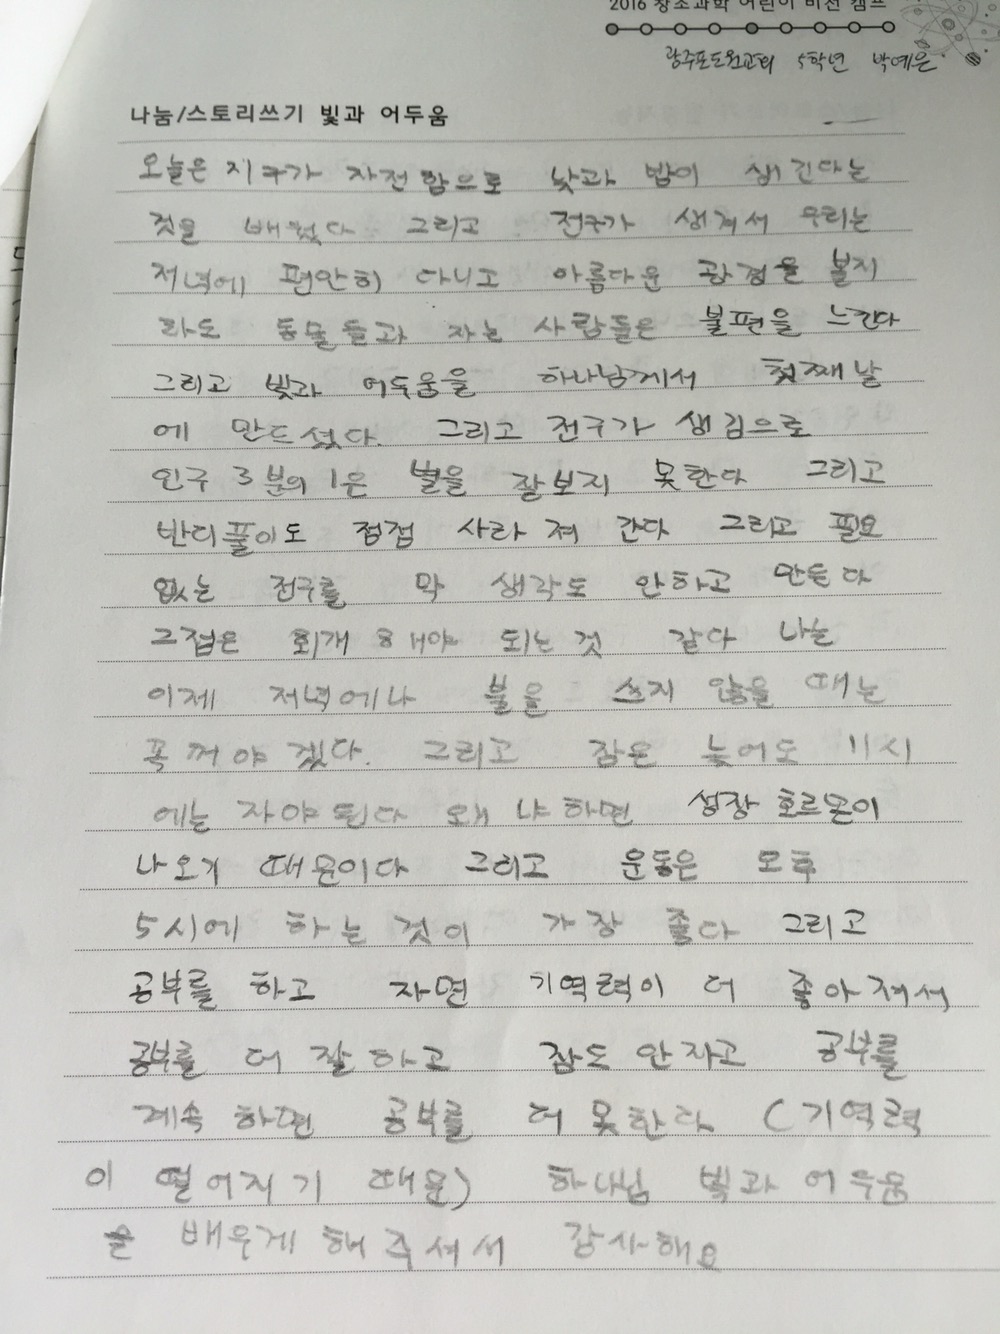 2016 창조과학 어린이 비전 캠프
광주포도원교회 5학년 박예은
나눔/스토리쓰기 빛과 어두움
오늘은 지구가 자전함으로 낮과 밤이 생긴다는
것을 배웠다 그리고 전구가 생겨서 우리는
저녁에 편안히 다니고 아름다운 광경을 볼지
라도 동물들과 자는 사람들은 불편을 느낀다
그리고 빛과 어두움을 하나님께서 첫째날
에 만드셨다. 그리고 전구가 생김으로
인구 3분의 1은 별을 잘보지 못한다 그리고
반디풀이도 점점 사라져 간다 그리고 필요
없는 전구를 막 생각도 안하고 만든다
그점은 회개 해야 되는 것 같다 나는
이제 저녁에나 불을 쓰지 않을 때는
꼭 꺼야 겠다. 그리고 잠은 늦어도 11시
에는 자야된다 왜냐하면 성장 호르몬이
나오기 때문이다 그리고 운동은 오후
5시에 하는 것이 가장 좋다 그리고
공부를 하고 자면 기역력이 더 좋아져서
공부를 더 잘하고 잠도 안자고 공부를
계속 하면 공부를 더 못한다 (기역력
이 떨어지기 때문) 하나님 빛과 어두움
을 배우게 해주셔서 감사해요